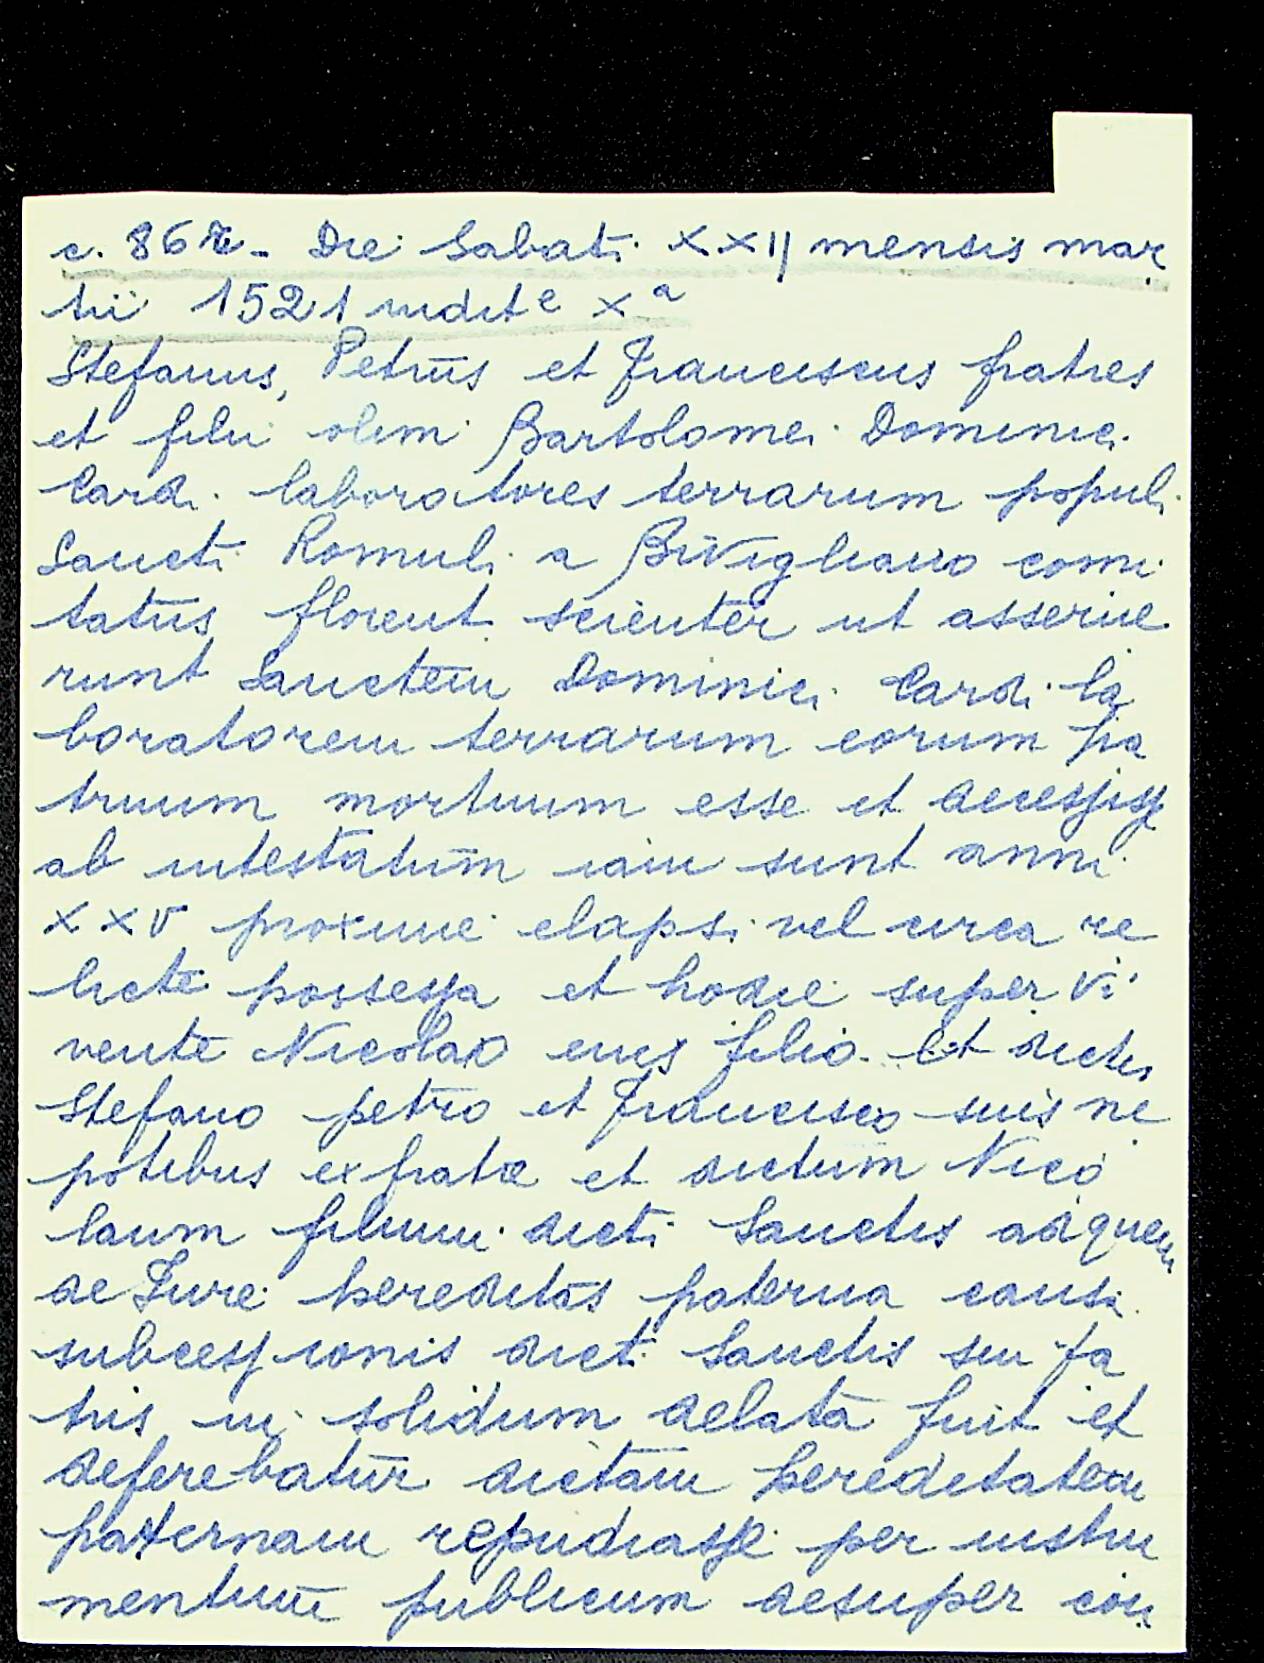 c. 86 r. Die Sabati XXII mensis mar
tii 1521 indit e X a
Stefanus, Petrus et Franciscus fratres
et filii olim Bartolomei Dominici
Cardi laboratores terrarum populi
Sancti Romuli a Bivigliano comi
tatus florent scienter ut asserue
runt Sanctem Dominici Cardi la
boratorem terrarum eorum pa
truum mortuum esse et decessisse
ab intestatum iam sunt anni
XXV proxime elapsi vel circa re
licte possessa et hodie super vi
vente Nicolao eius filio. Et dictis
Stefano petro et Francisco suis ne
potibus ex fratre et dictum Nico
laum filium dicti Sanctis ad quem
de Jure hereditas paterna causa
subcessionis dicti Sanctis sui pa
tris in solidum delata fuit et
deferebatur dictam hereditatem
paternam repudiasse per instru
mentum publicum desuper con